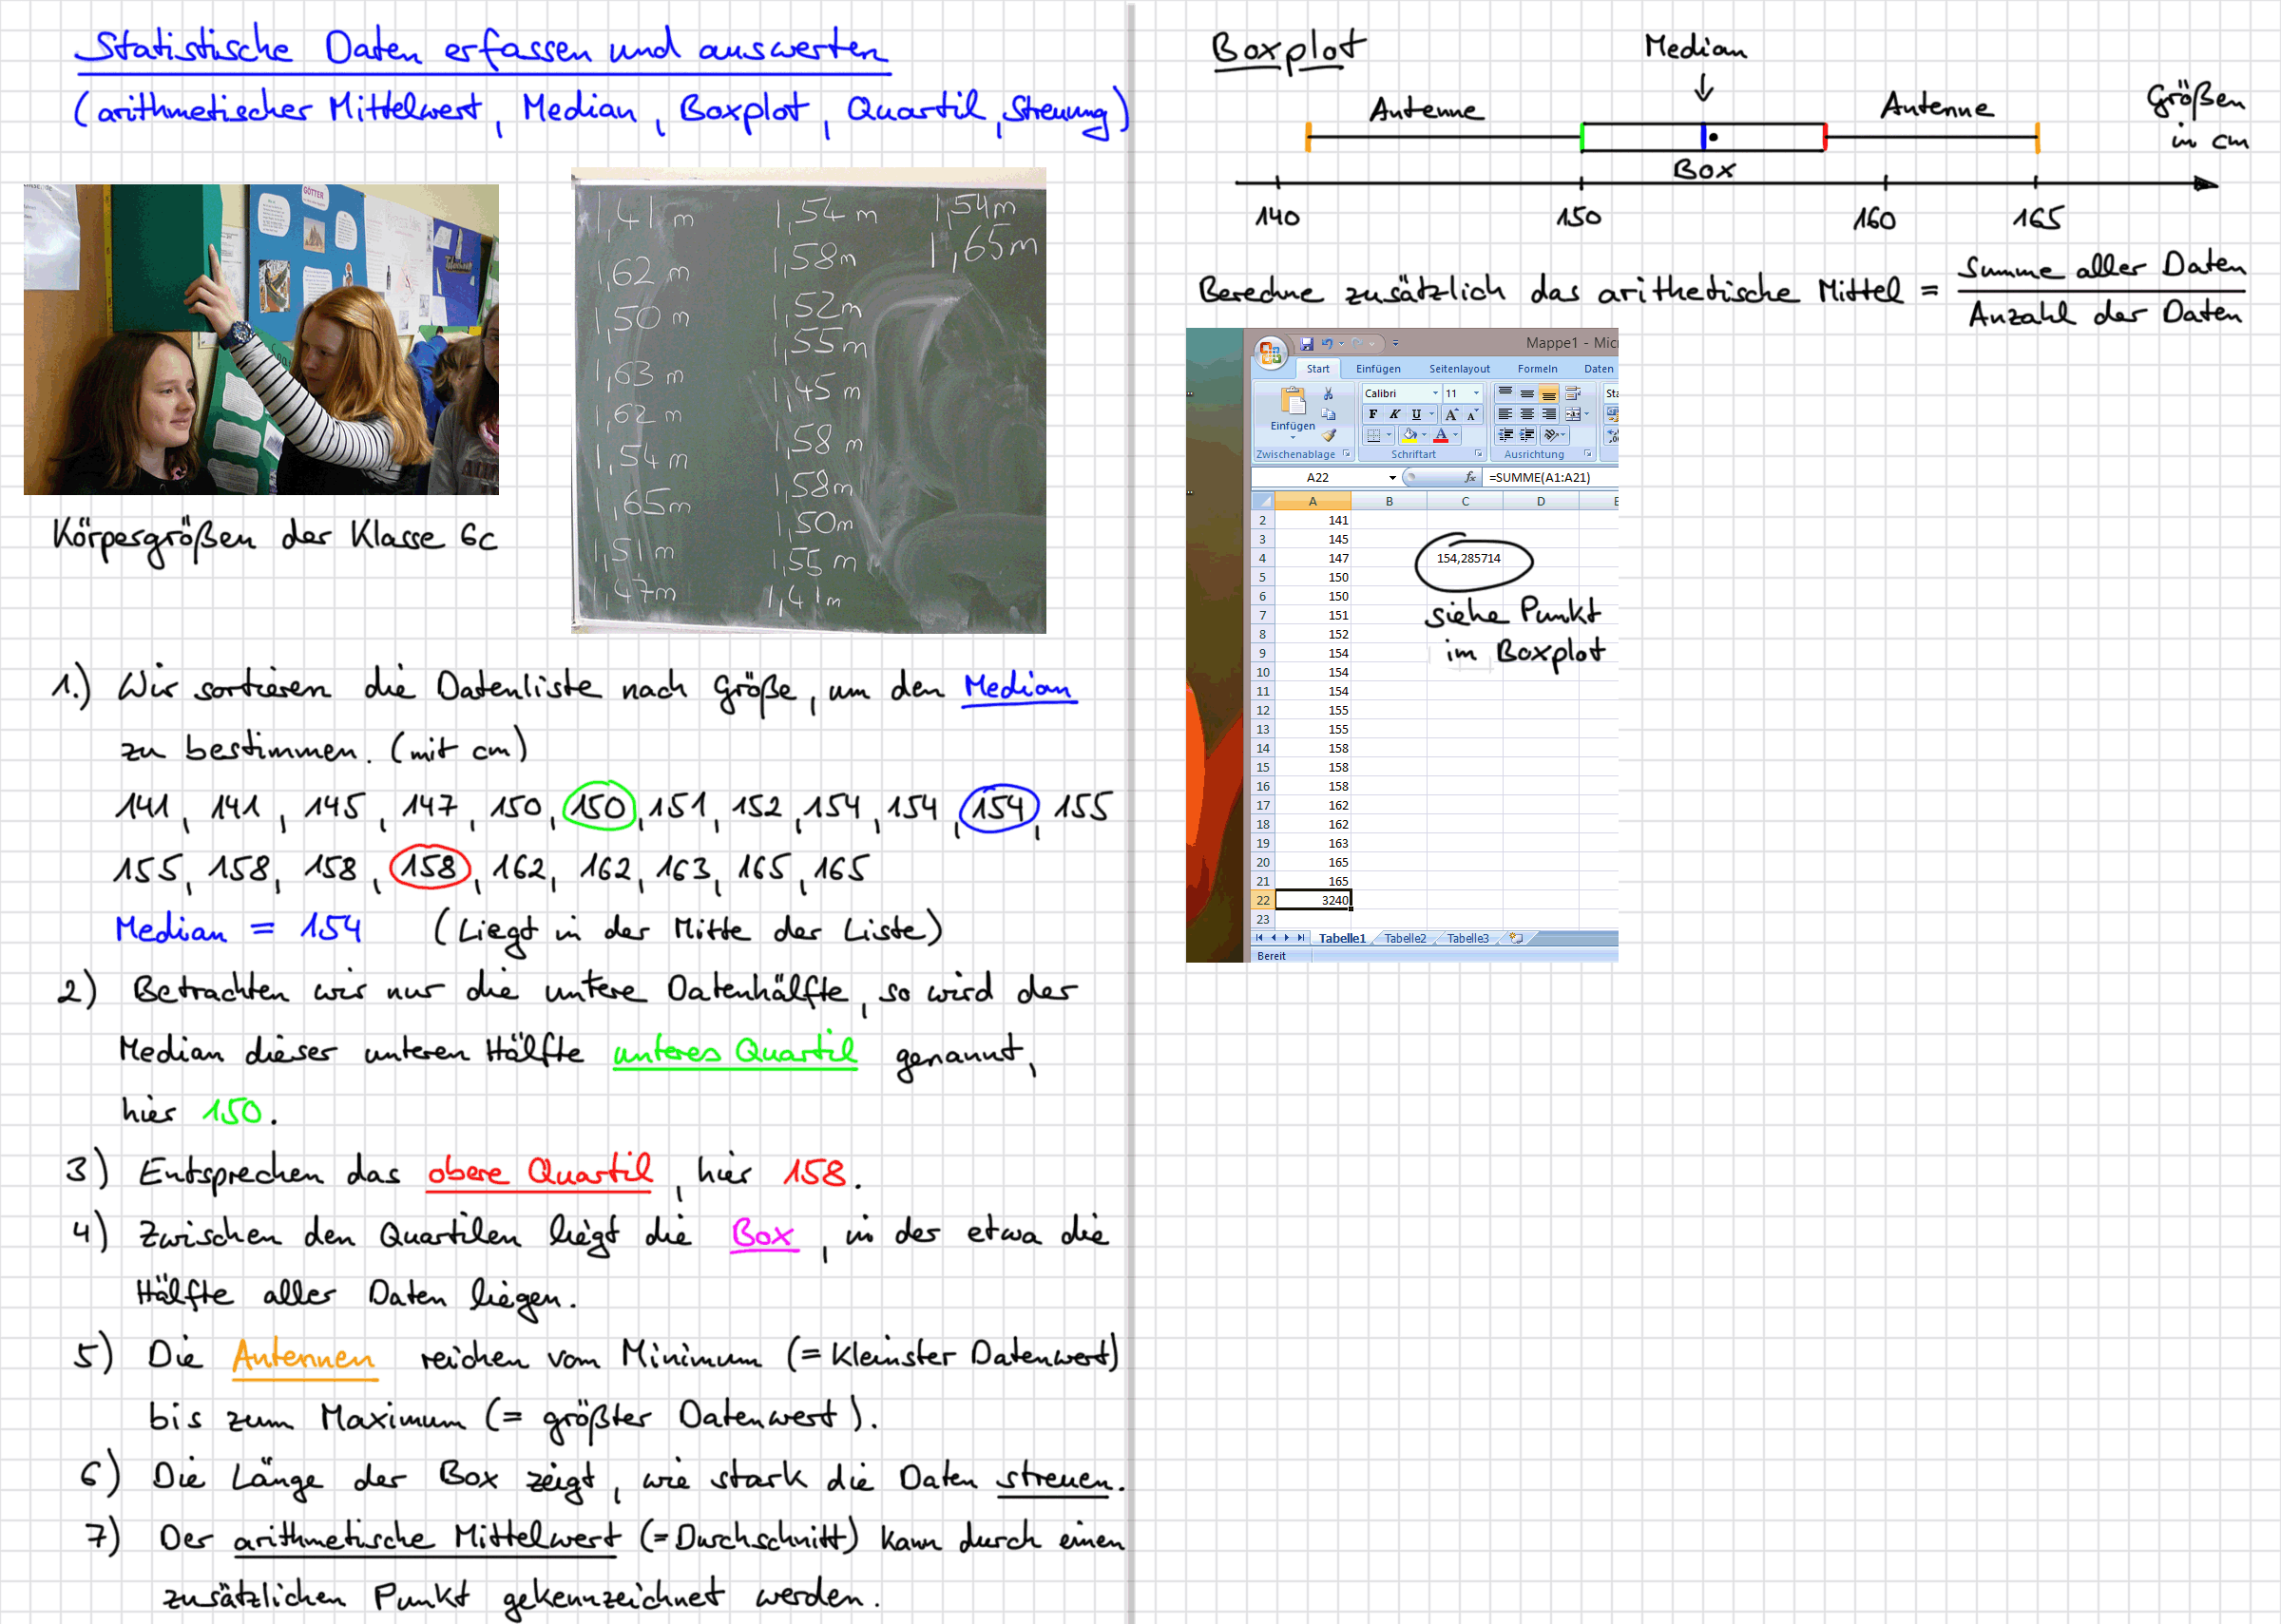 Statistische Daten erfassen und auswerten
(arithmetischer Mittelwert, Median, Boxplot, Quartil, Streuung)
GÖTTER
1,41 m
1,62 m
1,50 m
1,63 m
1,62 m
1,54 m
1,65m
1,51 m
1,47m
1,54 m
1,58m
1,52m
1,55m
1,45m
1,58 m
1,58m
1,50m
1,55 m
1,41m
1,54m
1,65m
Körpergrößen der Klasse 6c
1.) Wir sortieren die Datenliste nach Größe, um den Median
zu bestimmen. (mit cm)
141, 141, 145, 147, 150, 150, 151, 152, 154, 154, 154, 155
155, 158, 158, 158, 162, 162, 163, 165, 165
Median = 154 (Liegt in der Mitte der Liste)
2) Betrachten wir nur die untere Datenhälfte, so wird der
Median dieser unteren Hälfte unteres Quartil genannt,
hier 150.
3) Entsprechen das obere Quartil, hier 158.
4) Zwischen den Quartilen liegt die Box, in der etwa die
Hälfte aller Daten liegen.
5) Die Antennen reichen vom Minimum (= Kleinster Datenwert)
bis zum Maximum (= größter Datenwert).
6) Die Länge der Box zeigt, wie stark die Daten streuen.
7) Der arithmetische Mittelwert (=Durchschnitt) kann durch einen
zusätzlichen Punkt gekennzeichnet werden.
Boxplot
Median
Antenne
Antenne
Größen
in cm
Box
140 150 160 165
Berechne zusätzlich das arithetische Mittel = Summe aller Daten
Anzahl der Daten
Mappe1 - Micr
Start Einfügen Seitenlayout Formeln Daten
Calibri 11 Sta
Einfügen
F K U A A
Zwischenablage Schriftart Ausrichtung
A22 fx =SUMME(A1:A21)
A B C D E
2 141
3 145
4 147 154,285714
5 150
6 150
7 151
8 152
9 154
10 154
11 154
12 155
13 155
14 158
15 158
16 158
17 162
18 162
19 163
20 165
21 165
22 3240
23
siehe Punkt
im Boxplot
Tabelle1 Tabelle2 Tabelle3
Bereit